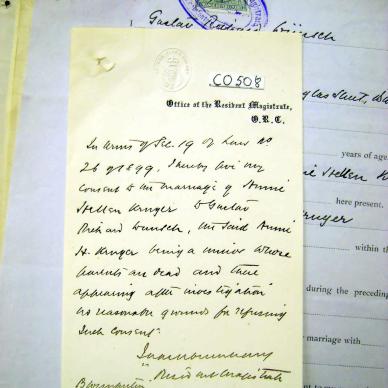 Gustav Richard Wünsch
CO508
Office of the Resident Magistrate,
O.R.C.
In terms of Sec. 19 of Law No
26 of 1899, I hereby give my
consent to the marriage of Annie
Hellen Kruger to Gustav
Richard Wunsch, the said Annie
H. Kruger being a minor whose
parents are dead and there
appearing after investigation
no reasonable grounds for refusing
such consent.
Resident Magistrate
years of age
Hellen K
here present.
Kruger
within the
during the preceding
marriage with